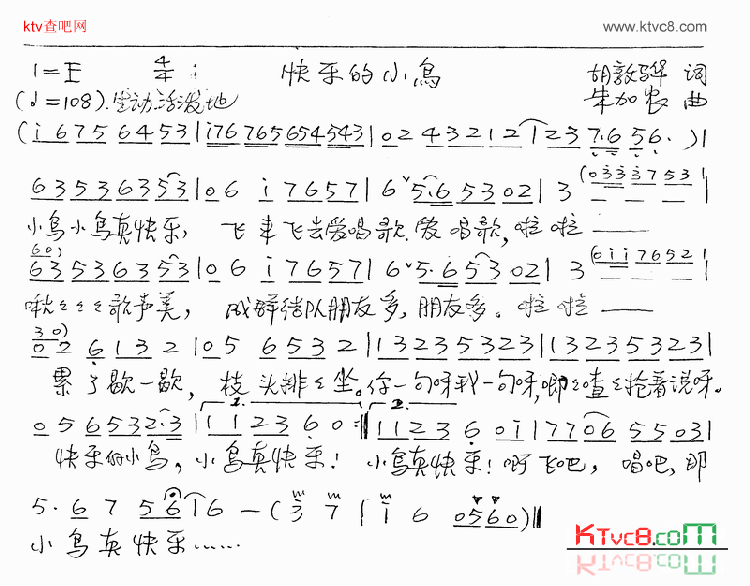 ktv查吧网
www.ktvc8.com
1=E 4/4 : 快乐的小鸟 胡敦骅 词
(♩=108).生动活泼地 朱加农 曲
(i 6 7 5 6 4 5 3 | i 7 6 7 6 5 6 5 4 5 4 3 | 0 2 4 3 2 1 2 1 2 3 7·6 5 6 · ) |
(0 3 3 3 7 5 3 |
6 3 5 3 6 3 5 3 | 0 6 i 7 6 5 7 | 6 ˅ 5·6 5 3 0 2 | 3 — — —
小鸟小鸟真快乐, 飞来飞去爱唱歌,爱唱歌,啦啦——
6 0;
(0 i i 7 6 5 2 |
6 3 5 3 6 3 5 3 | 0 6 i 7 6 5 7 | 6 ˅ 5·6 5 3 0 2 | 3 — — —
啾〻〻〻歌声美, 成群结队朋友多,朋友多。啦啦——
3 0)
0 2 6 1 3 2 | 0 5 6 5 3 2 | 1 3 2 3 5 3 2 3 | 1 3 2 3 5 3 2 3 |
累了歇一歇, 枝头排〻坐。你一句呀我一句呀,唧〻喳〻抢着说呀。
1. 2.
0 5 6 5 3 2·3 | 1 1 2 3 6 0 :‖ 1 1 2 3 6 0 i | 7 7 0 6 5 5 0 3 |
快乐的小鸟,小鸟真快乐! 小鸟真快乐!啊飞吧,唱吧,那
5 · 6 7 5 6 | 6 — (3 7 | i 6 0 5 6 0) ‖
小鸟真快乐……
KTvc8.com